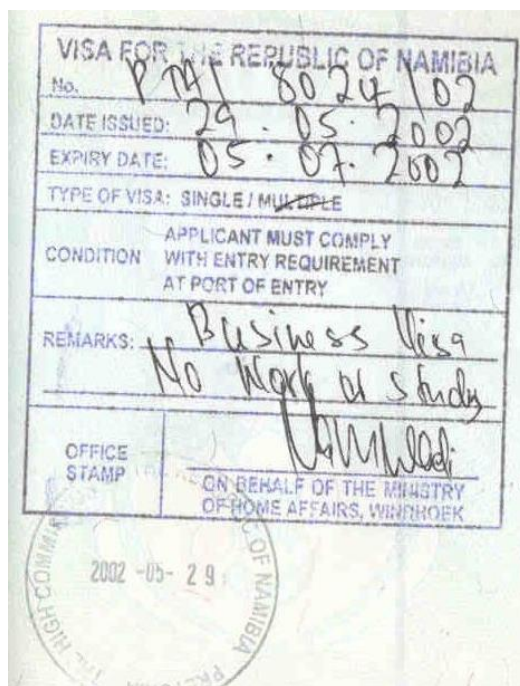 VISA FOR THE REPUBLIC OF NAMIBIA
No. 8024/02
DATE ISSUED: 29.05.2002
EXPIRY DATE: 05.07.2002
TYPE OF VISA: SINGLE / MULTIPLE
CONDITION
APPLICANT MUST COMPLY
WITH ENTRY REQUIREMENT
AT PORT OF ENTRY
REMARKS: Business Visa
No Work or Study
OFFICE
STAMP
ON BEHALF OF THE MINISTRY
OF HOME AFFAIRS, WINDHOEK
THE HIGH COMMI OF NAMIBIA
2002 -05- 29